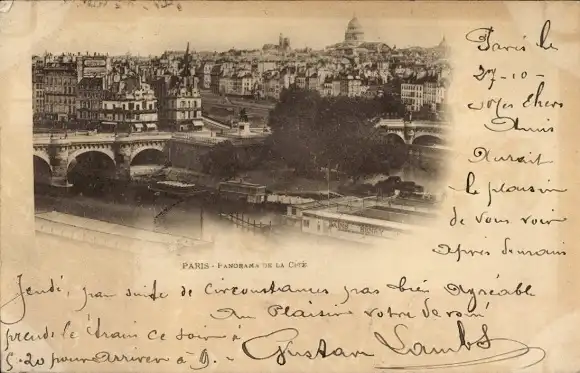 Paris le
27-10-
Mes Chers
Amis
Aurait
le plaisir
de vous voir
après demain
PARIS - PANORAMA DE LA CITÉ
Jeudi, par suite de circonstances pas bien agréable
Au plaisir votre dévoué
prends le train ce soir à
5.20 pour arriver à 9.
Gustave Lambs